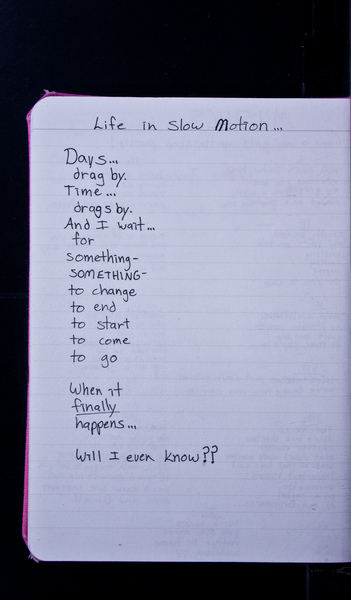 Life in Slow Motion...
Days...
drag by.
Time...
drags by.
And I wait...
for
something-
SOMETHING-
to change
to end
to start
to come
to go
When it
finally
happens...
Will I even know??